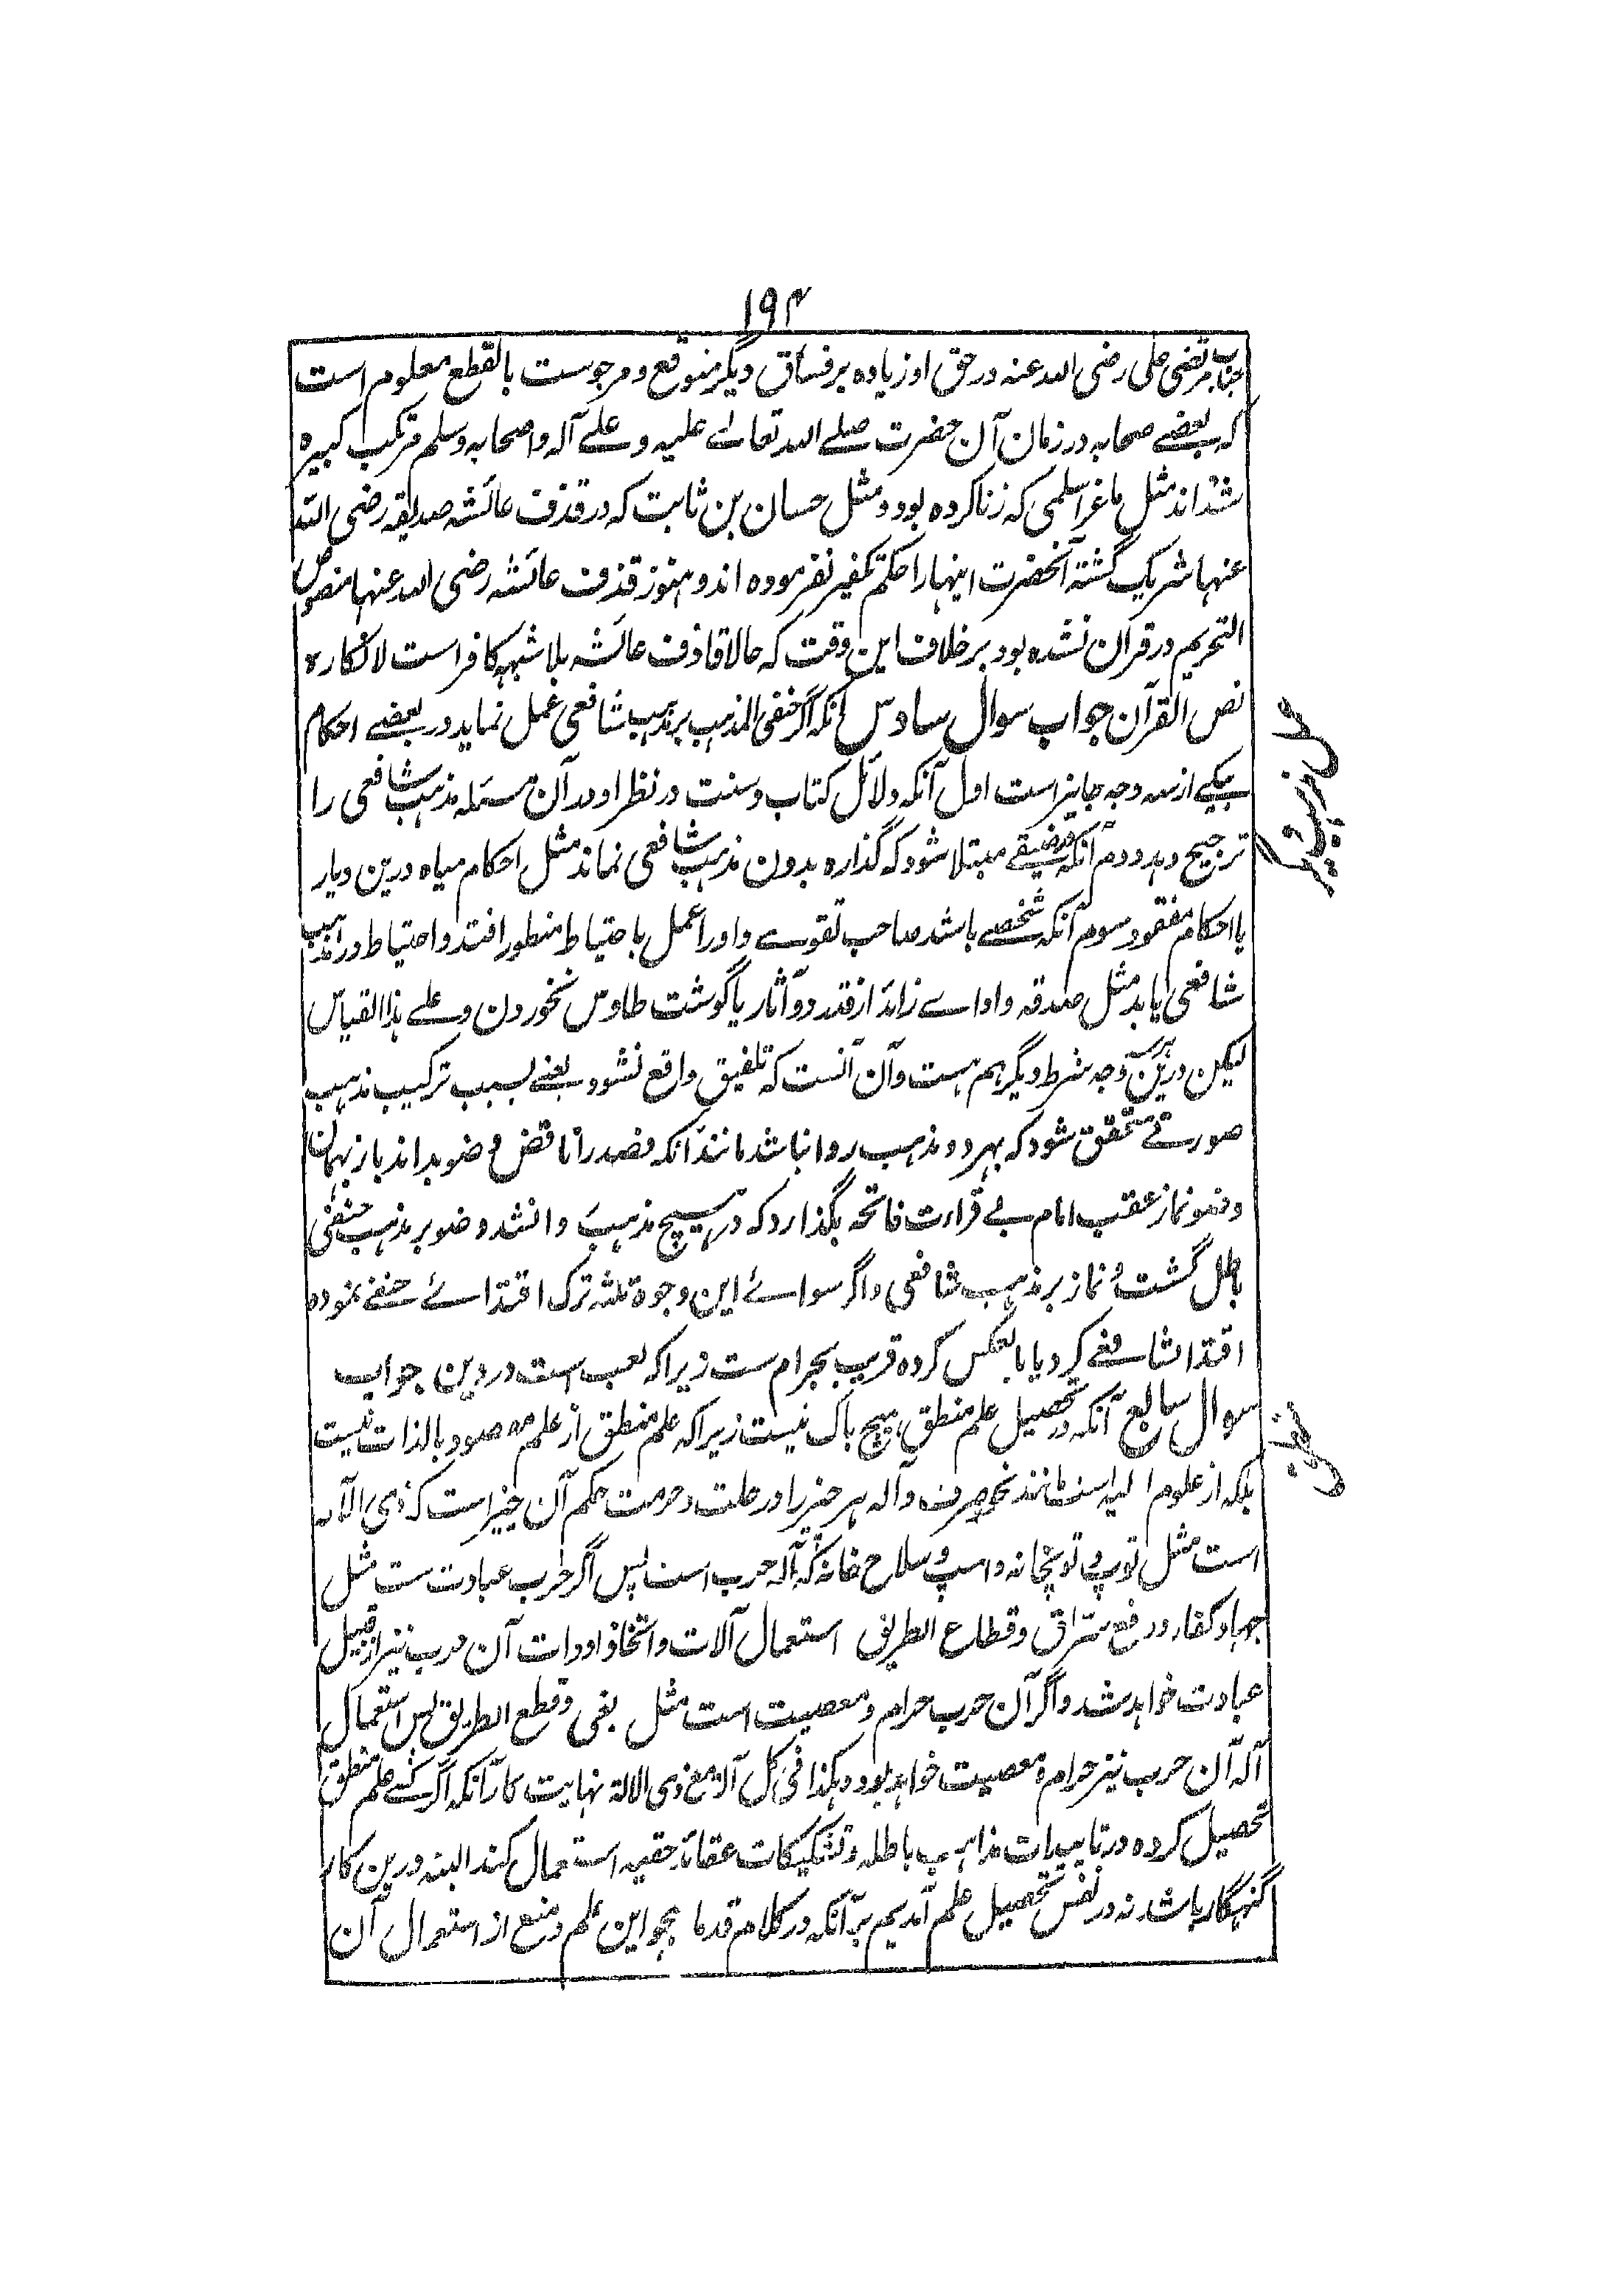 ۱۹۴
جناب مرتضی علی رضی الله عنه در حق او زیاده بر فساق دیگر متوقع و مرجوست بالقطع معلوم است
که بعضے صحابه در زمان آن حضرت صلے الله تعالے علیه و علے آله و اصحابه و سلم مرتکب کبیره
شده اند مثل ماعز اسلمی که زنا کرده بود و مثل حسان بن ثابت که در قذف عائشه صدیقه رضی الله
عنها شریک گشته آنحضرت اینها را حکم تکفیر نفرموده اند و هنوز قذف عائشه رضی الله عنها منصوص
التحریم در قرآن نشده بود بر خلاف این وقت که حالا قاذف عائشه بلا شبهه کافر است لانکاره
نص القرآن جواب سوال سادس آنکه اگر حنفی المذهب بر مذهب شافعی عمل نماید در بعضے احکام
بیکے از سه وجه جایز است اول آنکه دلائل کتاب و سنت در نظر او در آن مسئله مذهب شافعی را
ترجیح دهد دوم آنکه در ضیقے مبتلا شود که گذاره بدون مذهب شافعی نماند مثل احکام میاه درین دیار
یا احکام مفقود سوم آنکه شخصے باشد صاحب تقوے و او را عمل باحتیاط منظور افتد و احتیاط در مذهب
شافعی یابد مثل صدقه و اداے زائد از قدر دو آثار یا گوشت طاوس نخوردن و علے هذا القیاس
لیکن درین هر سه وجه شرط دیگر هم هست و آن آنست که تلفیق واقع نشود یعنے بسبب ترکیب مذهب
صورتے متحقق شود که بهر دو مذهب روا نباشد مانند آنکه فصد را ناقض وضو نداند باز بهمان
وضو نماز عقب امام بے قراءت فاتحه بگذارد که در هیچ مذهب روا نشد وضو بر مذهب حنفی
باطل گشت و نماز بر مذهب شافعی و اگر سوائے این وجوه ثلثه ترک اقتدائے حنفے نموده
اقتدا شافعے کرد یا بالعکس کرده قریب بحرام ست زیرا که لعب است در دین جواب
سوال سابع آنکه در تحصیل علم منطق هیچ باک نیست زیرا که علم منطق از علم مقصود بالذات نیست
بلکه از علوم آلیه است مانند نحو و صرف و آله هر چیز را در حلت و حرمت حکم آن چیز است که ذی الآله
است مثل توپ و توپخانه و اسپ و سلاح خانه که آله حرب است پس اگر حرب عبادت ست مثل
جهاد کفار و رفع سراق و قطاع الطریق استعمال آلات و اتخاذ ادوات آن حرب نیز از قبیل
عبادت خواهد شد و اگر آن حرب حرام و معصیت است مثل بغی و قطع الطریق پس استعمال
آله آن حرب نیز حرام و معصیت خواهد بود و هکذا فی کل آلة مع ذی الالة نهایت کار آنکه اگر کسے علم منطق
تحصیل کرده در تاییدات مذاهب باطله و تشکیکات عقائد حقیه استعمال کند البته درین کار
گنهگار باشد نه در نفس تحصیل علم آمدیم بر آنکه در کلام قدما هجو این علم و منع از استعمال آن